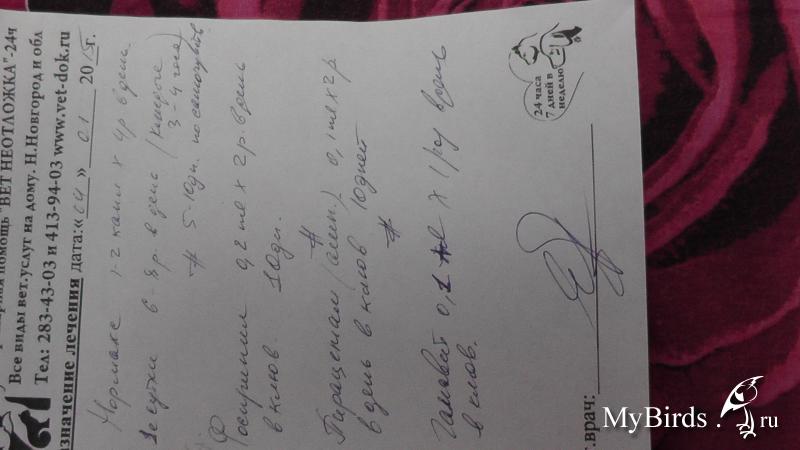 помощь "ВЕТ НЕОТЛОЖКА"-24ч
Все виды вет.услуг на дому. Н.Новгород и обл
Тел: 283-43-03 и 413-94-03 www.vet-dok.ru
азначение лечения дата:« » 01 20 г.
Нормакс 1-2 капли х 4р в день
1е сутки 6-8р. в день (каждые
3-4 часа)
# 5-10дн. по
Фосприенил 0,2 мл х 2р. в день
в клюв. 10дн.
#
Пирацетам (амп.) 0,1мл х 2р
в день в клюв 10дней
#
Гамавит 0,1 мл х 1р у в день
в клюв.
24 часа
7 дней в
неделю
.врач:
MyBirds.ru